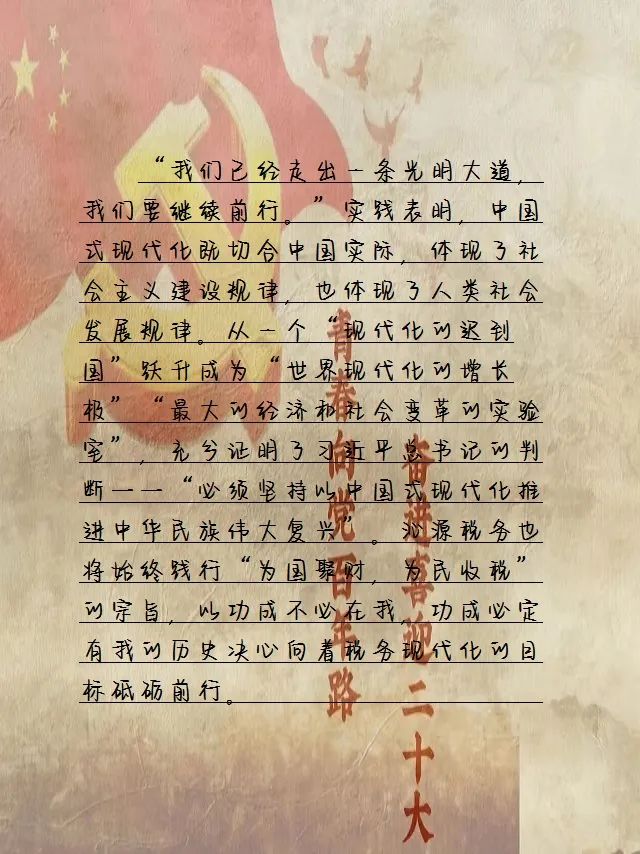 “我们已经走出一条光明大道，
我们要继续前行。”实践表明，中国
式现代化既切合中国实际，体现了社
会主义建设规律，也体现了人类社会
发展规律。从一个“现代化的迟到
国”跃升成为“世界现代化的增长
极”“最大的经济和社会变革的实验
室”，充分证明了习近平总书记的判
断——“必须坚持以中国式现代化推
进中华民族伟大复兴”。沁源税务也
将始终践行“为国聚财，为民收税”
的宗旨，以功成不必在我，功成必定
有我的历史决心向着税务现代化的目
标砥砺前行。
青春向党百年路
奋进喜迎二十大